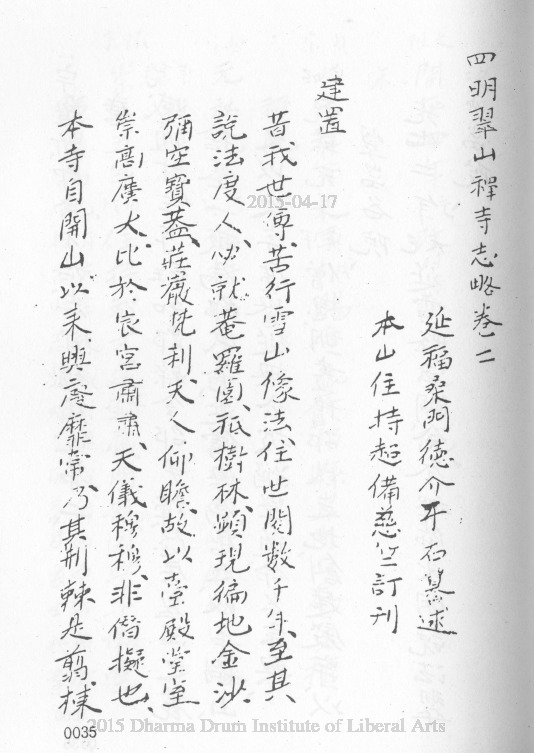 四明翠山禪寺志略卷二
延福桑門德介平石纂述
本山住持超備慈竺訂刊
建置
昔我世尊苦行雪山像法住世閱數千年至其
說法度人必就菴羅園祇樹林顯現徧地金沙
彌空寶葢莊嚴梵剎天人仰瞻故以堂殿瑩室
崇高廣大比於宸宮肅肅天儀穆穆非僭擬也
本寺自開山以來興廢靡常乃其荆棘是翦棟
2015-04-17
0035
2015 Dharma Drum Institute of Liberal Arts